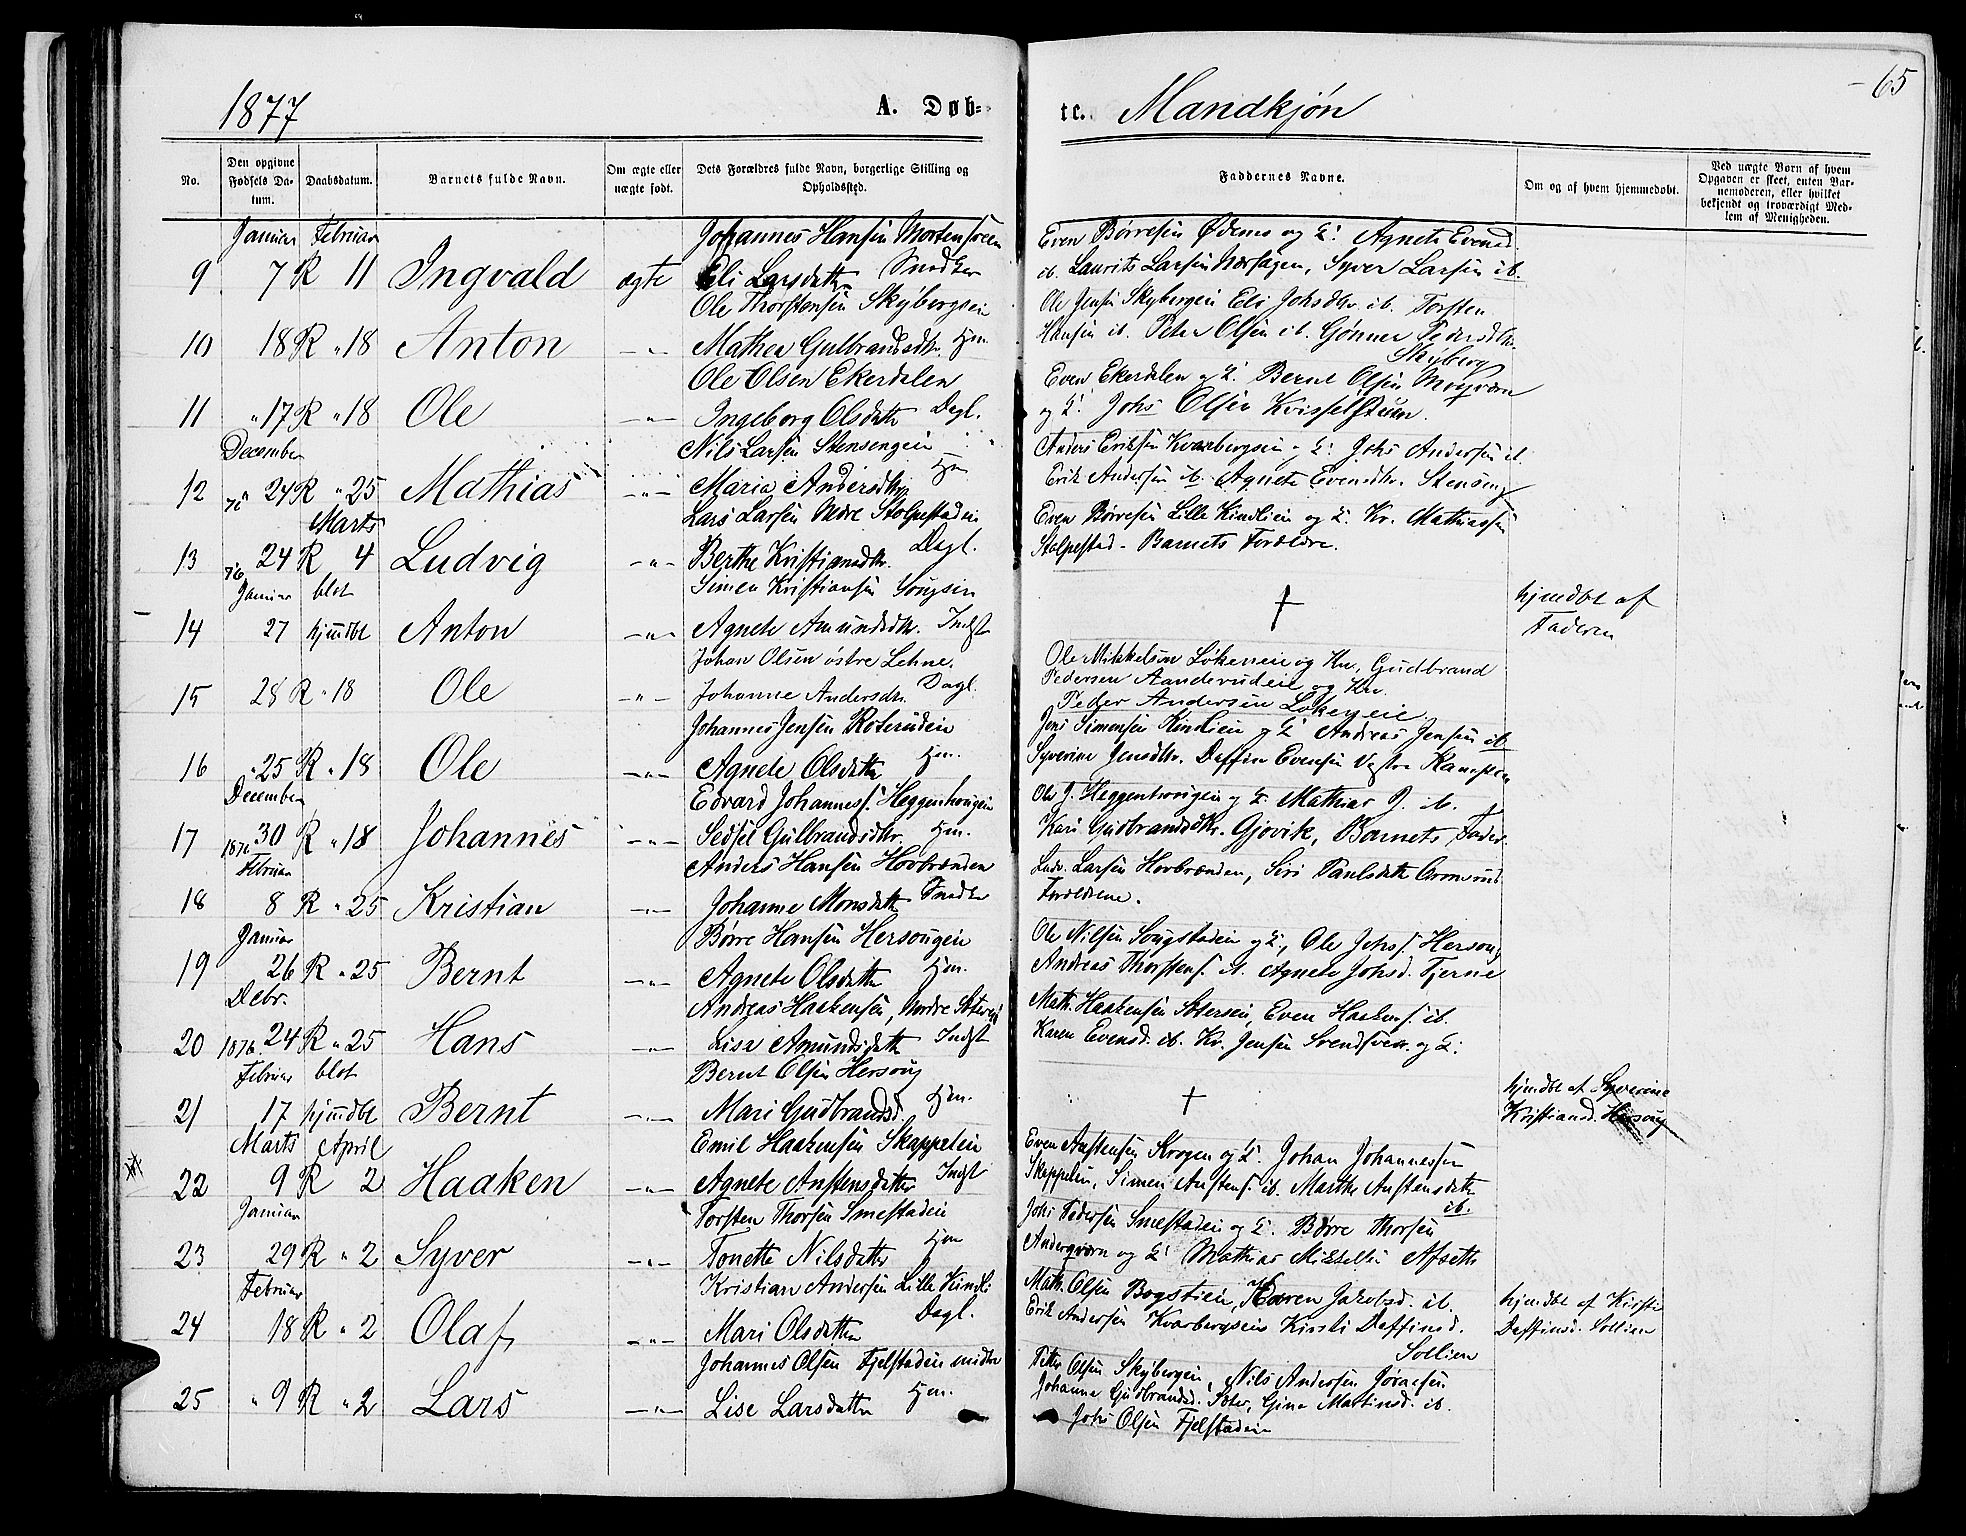 1877
A. Døb-
te.
Mandkjøn
65
No.
Den opgivne Fødsels Da-tum.
Daabsdatum.
Barnets fulde Navn.
Om ægte eller uægte født.
Dets Forældres fulde Navn, borgerlige Stilling og Opholdssted.
Faddernes Navne.
Om og af hvem hjemmedøbt.
Ved uægte Børn af hvem Opgaven er skeet, enten Bar-nemoderen, eller hvilket bekjendt og troværdigt Med-lem af Menigheden.
Januar Februar Johannes Hansen
9 7 R 11 Ingvald ægte Eli Larsdatter Snedker
Even Børresen Ødemo og H. Agnete Evensd.
ib. Laurits Larsen Norhagen, Syver Larsen ib.
Ole Thorstensen Skybergeie
10 18 R " 18 Anton -"- Mathea Gulbrandsdtr. Hm.
Ole Jensen Skybergeie Eli Johsdtr. ib. Torsten
Hansen ib. Peter Olsen ib. Gønner Pedersdtr.
Skyberg
Ole Olsen Ekerdalen
11 " 17 R " 18 Ole -"- Ingeborg Olsdatter Dagl.
Even Ekerdalen og H. Bernt Olsen
og H. Johs Olsen
December Nils Larsen Stensengeie
12 76 24 R " 25 Mathias -"- Maria Andersdtr. Hm
Anders Eriksen Kvarbergseie og H. Johs Andersen ib.
Erik Andersen ib. Agnete Evensdtr. Stenseng
Marts Lars Larsen Nedre Stolpestadeie
13 76 24 R 4 Ludvig -"- Berthe Kristiansdtr. Dagl.
Even Børresen Lille Kindlien og H. Kr. Mathiassen
Stolpestad - Barnets Forældre.
Januar blot Simen Kristiansen
14 27 hjmdbt Anton -"- Agnete Amundsdtr. Indst
† hjmdbt af
Faderen
Johan Olsen østre Lehne.
15 28 R " 18 Ole -"- Johanne Andersdtr. Dagl.
Ole Mikkelsen Løkeneie og Kn, Gudbrand
Pedersen Aanderudeie og Kn.
Peder Andersen Løkeneie.
Johannes Jensen Roterudeie
16 " 25 R " 18 Ole -"- Agnete Olsdatter Hm.
Jens Simensen Kindlien og H. Andreas Jensen ib
Syverine Jensdtr. Daffin Evensen Vestre
December Edvard Johanness. Heggenhougen
17 1876 30 R " 18 Johannes -"- Sedsel Gulbrandsdtr. Hm.
Ole J. Heggenhougen og H. Mathias J. ib.
Kari Gudbrandsdtr. Gjøvik, Barnets Fader.
Februar Anders Hansen Hovbrænden
18 8 R " 25 Kristian -"- Johanne Monsdatter Snedker
Ludv. Larsen Hovbrænden, Siri Paulsdatter
Forældrene.
Januar Børre Hansen Hersougeie
19 26 R " 25 Bernt -"- Agnete Olsdatter Hm.
Ole Nilsen Sougstadeie og H., Ole Johs s. Hersoug
Andreas Thorstens. ib. Agnete Johsd. Tjerne
Debr. Andreas Haakensen, Nordre
20 1876 24 R " 25 Hans -"- Lisa Amundsdatter Indst
Math. Haakensen Sætereie, Even Haakens. ib.
Karen Evensd. ib. Kr. Jensen Svendsveen og H.
Februar blot Bernt Olsen Hersoug
21 17 hjmdbt Bernt -"- Mari Gudbrandsd. Hm.
† hjmdbt af Syverine
Kristiansd. Hersoug
Marts April Emil Haakensen Skappeleie
22 9 R 2 Haaken -"- Agnete Anstensdatter Indst
Even Anstensen Krogen og H. Johan Johannessen
Skappeleie, Simen Anstens. ib. Marthe Anstensdatter
ib.
Januar Torsten Thorsen Smestadeie
23 29 R " 2 Syver -"- Tonette Nilsdatter Hm
Johs Pedersen Smestadeie og H. Børre Thorsen
og H. Mathias Mikkelsen Afseth
Februar Kristian Andersen Lille Kindli
24 18 R " 2 Olaf -"- Mari Olsdatter Dagl.
Math. Olsen Bogstieie, Karen Jakobsd. ib.
Erik Andersen Kvarbergseie Kirsti Daffinsd.
Sollien
hjmdbt af Kirsti
Daffinsd. Sollien
Johannes Olsen Fjelstadeie midtre
25 " 9 R " 2 Lars -"- Lise Larsdatter Hm.
Petter Olsen Skybergeie, Nils Andersen
Johanne Gudbrandsd. Sæter, Gina Martinsd. ib.
Johs Olsen Fjelstadeie